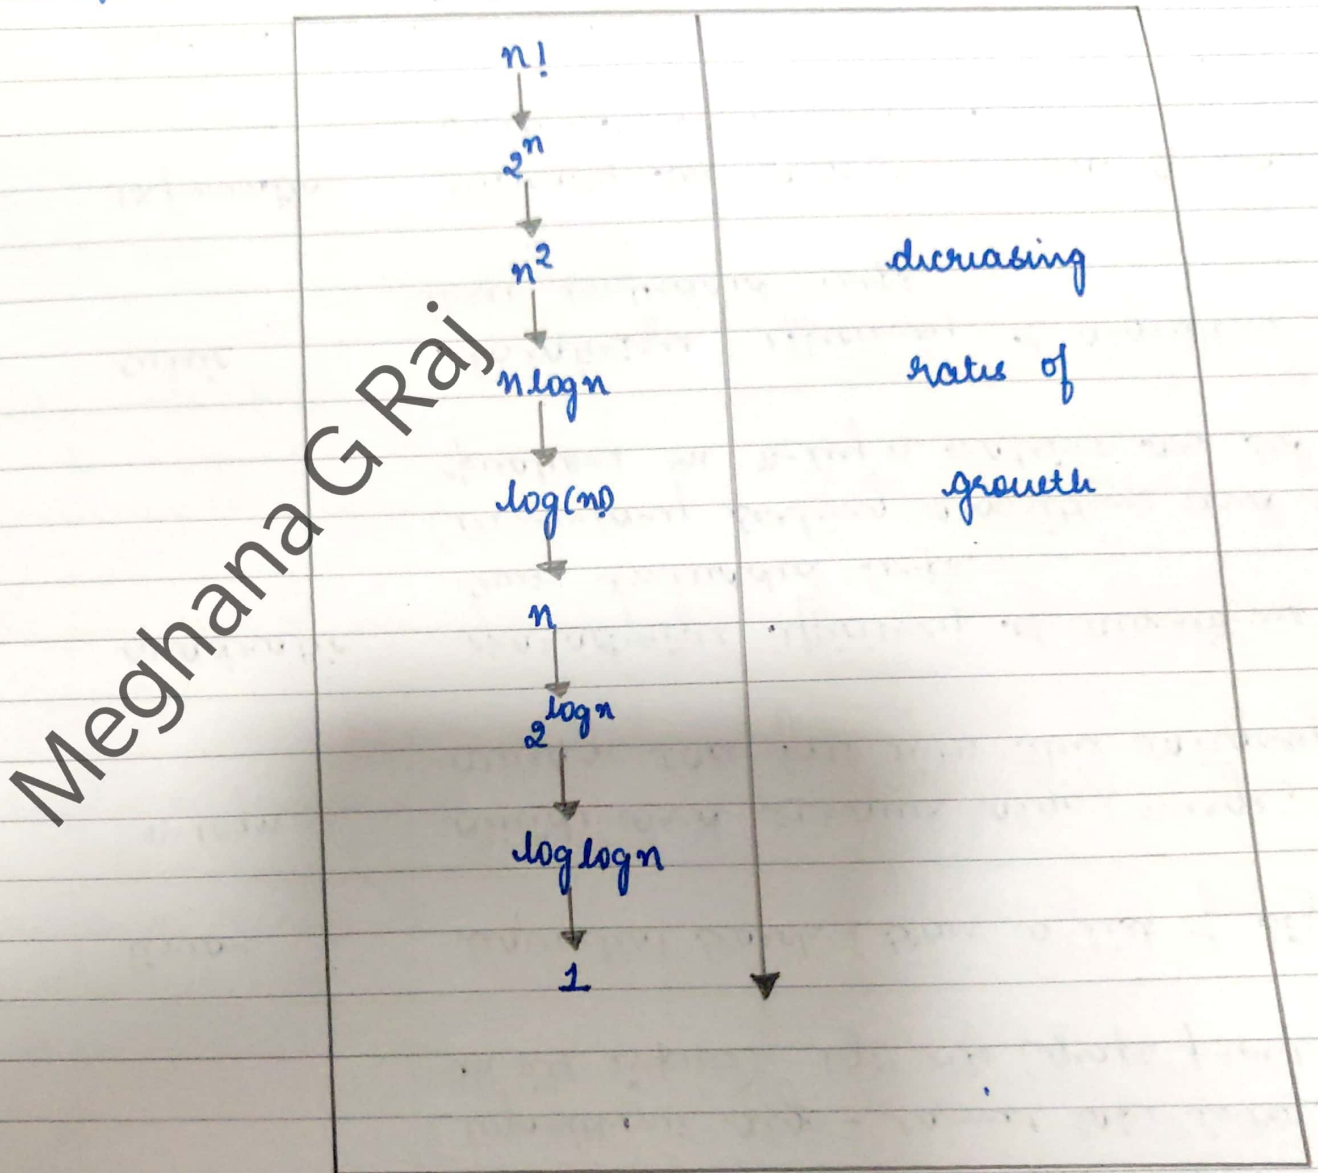 n!
2^n
n^2
n log n
log(n!)
n
2^log n
log log n
1
decreasing
rates of
growth
Meghana G Raj